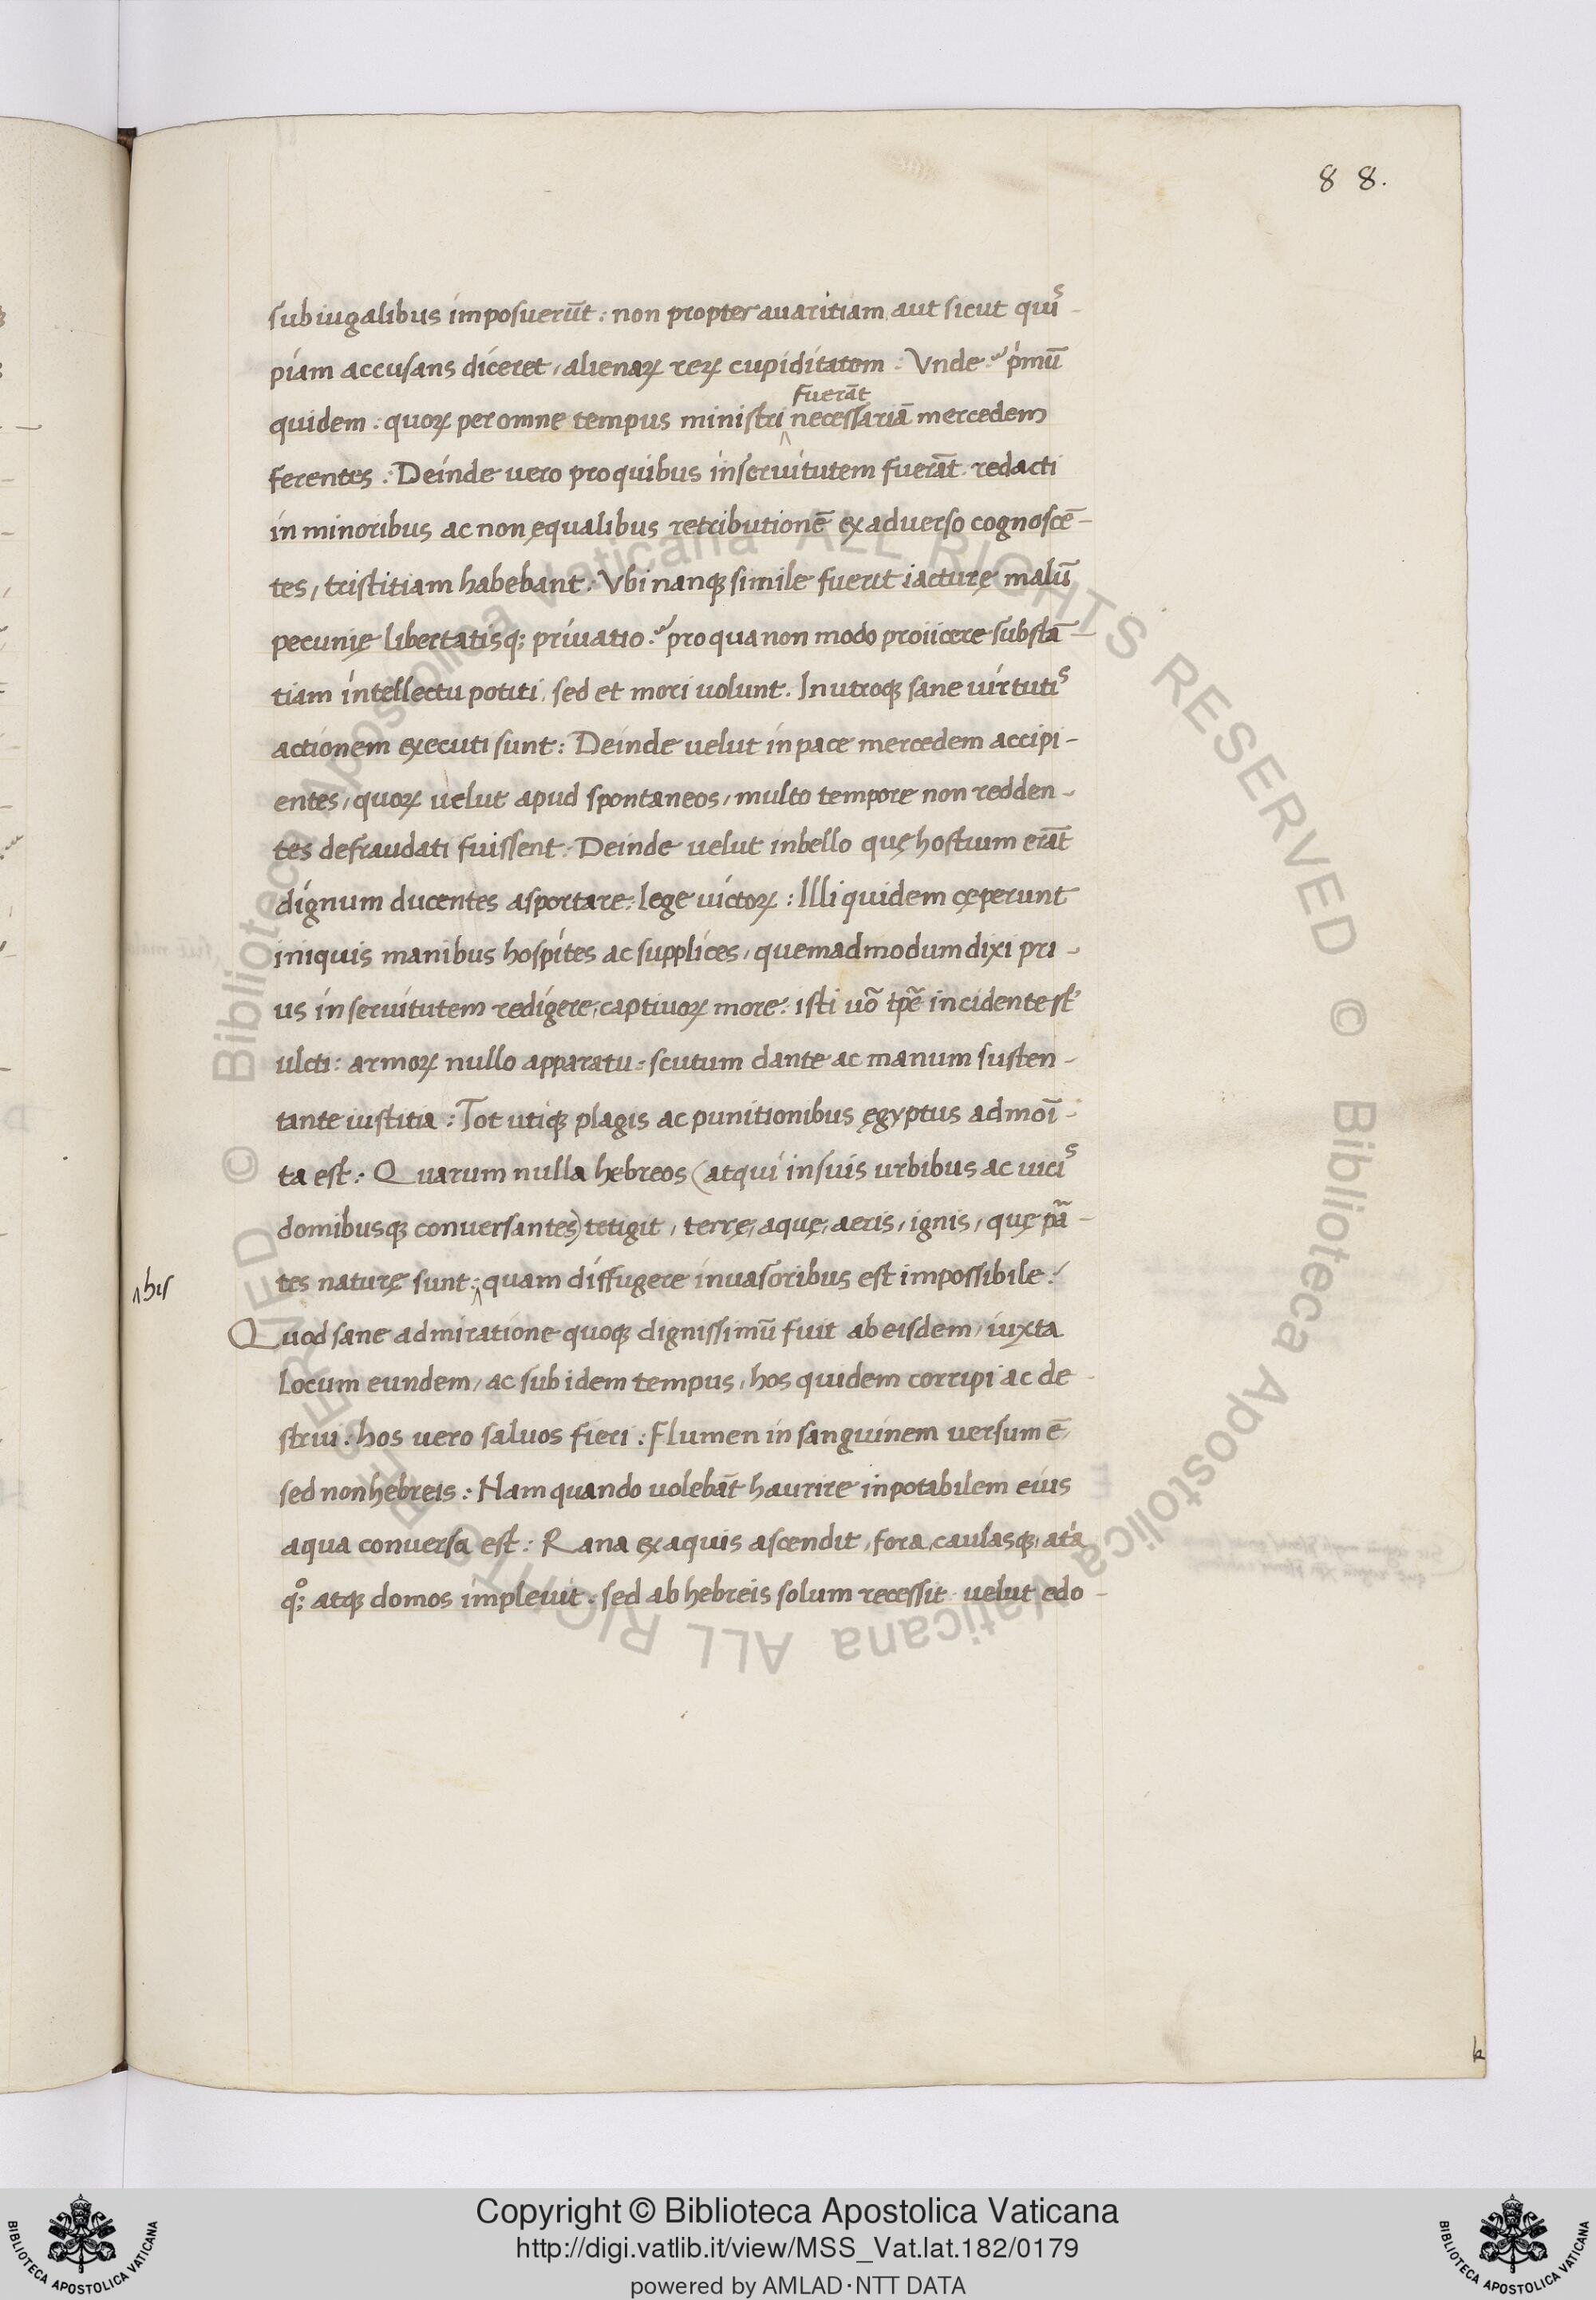 88.
subiugalibus imposuerūt: non propter avaritiam aut sicut quis-
piam accusans diceret, alienaꝝ reꝝ cupiditatem: Vnde? pͥmū
quidem: quoꝝ per omne tempus ministri fuerāt necessariā mercedem
ferentes: Deinde uero pro quibus in seruitutem fuerāt redacti
in minoribus ac non ęqualibus retributionē ex aduerso cognoscē-
tes, tristitiam habebant: Vbi nanqꝫ simile fuerit iacturę malū
pecunię libertatisqꝫ priuatio? pro qua non modo proiicere substā-
tiam intellectu potiti, sed et mori uolunt. In utroqꝫ sane uirtutis
actionem executi sunt: Deinde uelut in pace mercedem accipi-
entes, quoꝝ uelut apud spontaneos, multo tempore non redden-
tes defraudati fuissent. Deinde uelut in bello quę hostium erāt
dignum ducentes asportare: lege uictoꝝ: Illi quidem cęperunt
iniquis manibus hospites ac supplices, quemadmodum dixi pri-
us in seruitutem redigere, captiuoꝝ more: isti uō tpē incidente st̄
ulcti: armoꝝ nullo apparatu: scutum dante ac manum susten-
tante iustitia: Tot utiqꝫ plagis ac punitionibus ęgyptus admoī-
ta est: Quarum nulla hebreos (atqui in suis urbibus ac uicis
domibusqꝫ conuersantes) tetigit, terrę, aquę, aeris, ignis, quę pā-
tes naturę sunt: quam diffugere inuasoribus est impossibile:
Quod sane admiratione quoqꝫ dignissimū fuit ab eisdem, iuxta
locum eundem, ac sub idem tempus, hos quidem corripi ac de-
strui: hos uero saluos fieri: Flumen in sanguinem uersum ē,
sed non hebreis: Nam quando uolebāt haurire in potabilem eius
aqua conuersa est: Rana ex aquis ascendit, fora, caulasqꝫ, atͥa
qͦꝫ atqꝫ domos impleuit: sed ab hebreis solum recessit uelut edo-
Copyright © Biblioteca Apostolica Vaticana
http://digi.vatlib.it/view/MSS_Vat.lat.182/0179
powered by AMLAD·NTT DATA
BIBLIOTECA APOSTOLICA VATICANA
BIBLIOTECA APOSTOLICA VATICANA
© Biblioteca Apostolica Vaticana ALL RIGHTS RESERVED © Biblioteca Apostolica Vaticana ALL RIGHTS RESERVED